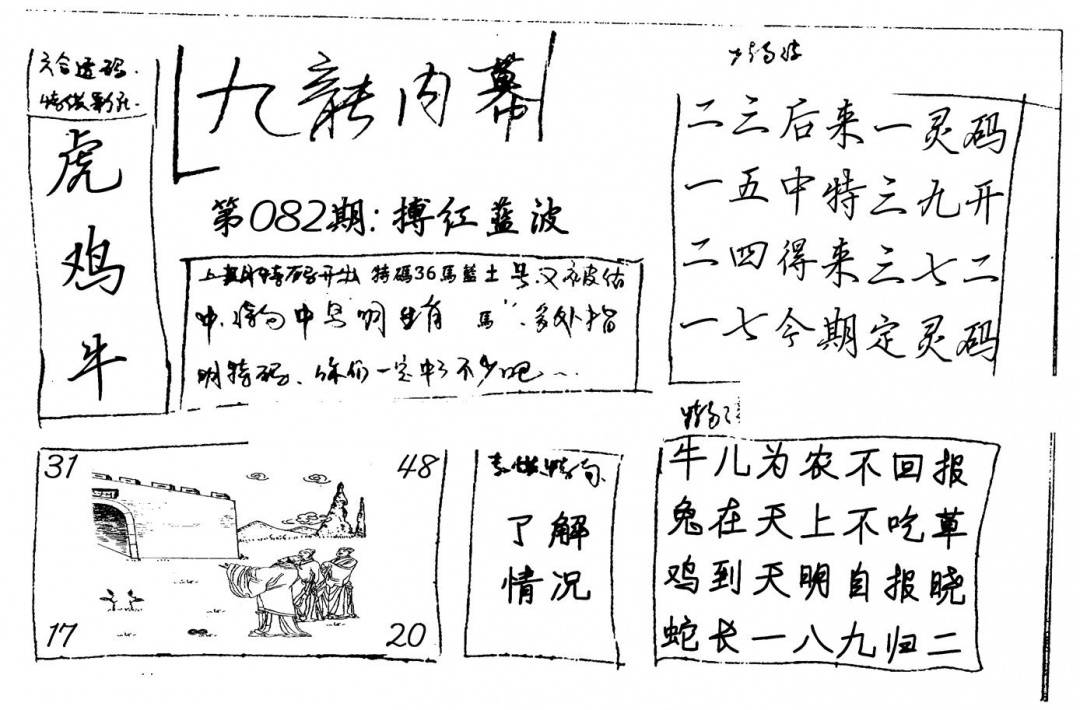 六合透码
九龍内幕
虎
鸡
牛
第082期:搏红蓝波
上期特码开出 特碼36馬藍土 号又被估
中.特句中号明生肖 馬".多处指
明特码.你们一定中了不少吧~
二三后来一灵码
一五中特三九开
二四得来三七二
一七今期定灵码
31
48
17
20
了解
情况
牛儿为农不回报
兔在天上不吃草
鸡到天明自报晓
蛇长一八九归二